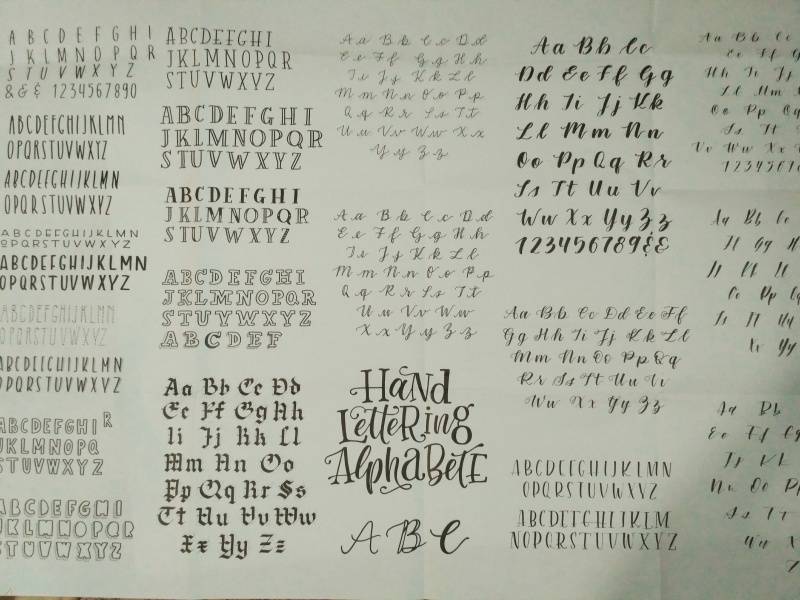 A B C D E F G H I
J K L M N O P Q R
S T U V W X Y Z
& & & 1234567890
ABCDEFGHIJKLMN
OPQRSTUVWXYZ
ABCDEFGHIJKLMN
OPQRSTUVWXYZ
ABCDEFGHIJKLMN
OPQRSTUVWXYZ
ABCDEFGHIJKLMN
OPQRSTUVWXYZ
ABCDEFGHIJKLMN
OPQRSTUVWXYZ
ABCDEFGHIJKLMN
OPQRSTUVWXYZ
ABCDEFGHI R
JKLMNOPQ
STUVWXYZ
ABCDEFGHI
JKLMNOPQR
STUVWXYZ
ABCDEFGHI
JKLMNOPQR
STUVWXYZ
ABCDEFGHI
JKLMNOPQR
STUVWXYZ
ABCDEFGHI
JKLMNOPQR
STUVWXYZ
ABCDEFGHI
JKLMNOPQR
STUVWXYZ
ABCDEF
Aa Bb Cc Dd
Ee Ff Gg Hh
Ii Jj Kk Ll
Mm Nn Oo
Pp Qq Rr Ss
Tt Uu Vv Ww
Xx Yy Zz
Aa Bb Cc Dd
Ee Ff Gg Hh
Ii Jj Kk Ll
Mm Nn Oo Pp
Qq Rr Ss Tt
Uu Vv Ww Xx
Yy Zz
Aa Bb Cc Dd
Ee Ff Gg Hh
Ii Jj Kk Ll
Mm Nn Oo Pp
Qq Rr Ss Tt
Uu Vv Ww
Xx Yy Zz
Hand
Lettering
Alphabete
A B C
Aa Bb Cc
Dd Ee Ff Gg
Hh Ii Jj Kk
Ll Mm Nn
Oo Pp Qq Rr
Ss Tt Uu Vv
Ww Xx Yy Zz
123456789&E
Aa Bb Cc Dd Ee Ff
Gg Hh Ii Jj Kk Ll
Mm Nn Oo Pp Qq
Rr Ss Tt Uu Vv
Ww Xx Yy Zz
ABCDEFGHIJKLMN
OPQRSTUVWXYZ
ABCDEFGHIJKLM
NOPQRSTUVWXYZ
Aa Bb Cc Dd
Ee Ff Gg
Hh Ii Jj
Ll Mm
Oo Pp Qq
Ss Tt
Vv Ww Xx
12345678
Aa Bb Cc
Ff Gg Hh
Jj Ll
Oo Pp Qq
Ss Tt Uu
Xx Yy
Aa Bb
Ee Ff Gg
Jj Kk
Nn Oo Pp
Ss Tt
Ww Xx
Z